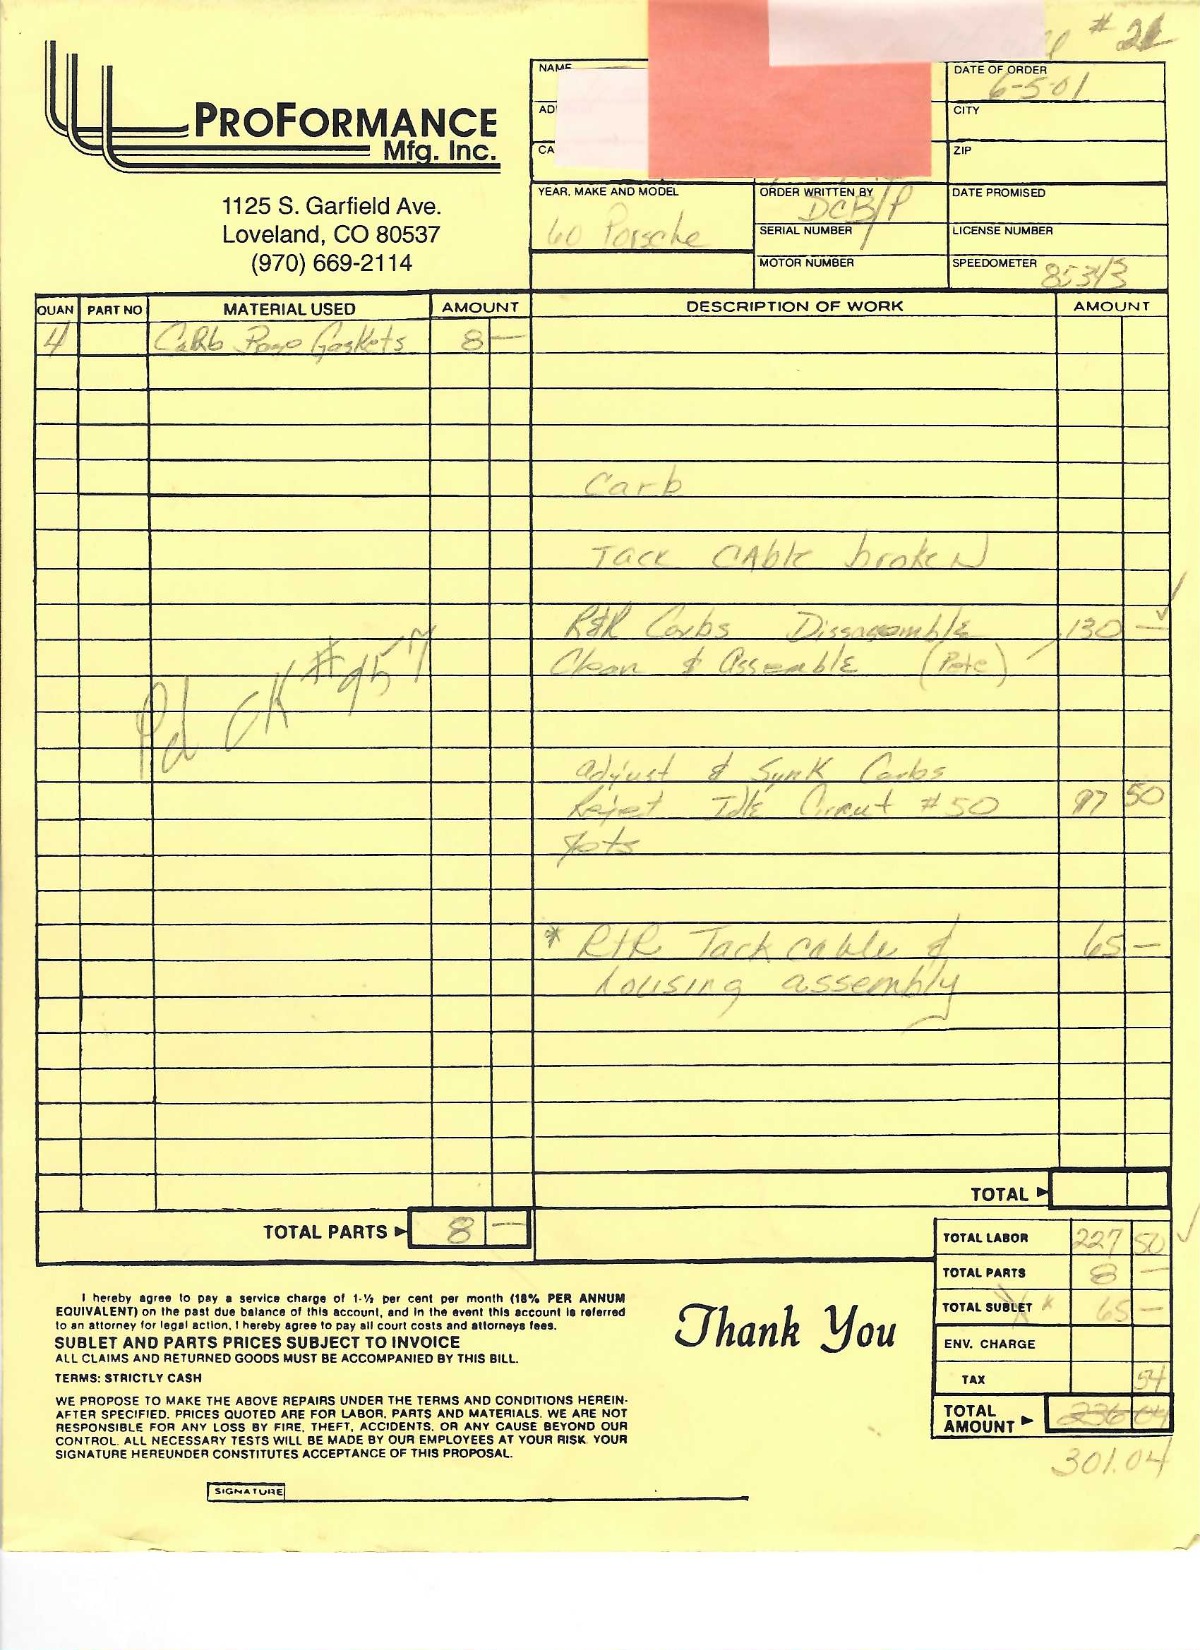 # 21
PROFORMANCE
Mfg. Inc.
1125 S. Garfield Ave.
Loveland, CO 80537
(970) 669-2114
NAME
DATE OF ORDER
6-5-01
AD
CITY
CA
ZIP
YEAR, MAKE AND MODEL
60 Porsche
ORDER WRITTEN BY
DCB/P
DATE PROMISED
SERIAL NUMBER
LICENSE NUMBER
MOTOR NUMBER
SPEEDOMETER 85343
QUAN PART NO MATERIAL USED AMOUNT DESCRIPTION OF WORK AMOUNT
4 Carb Base Gaskets 8 —
Carb
Tack CAble broken
R&R Carbs Dissasemble 130 —
Clean & Assemble (Pete)
Pd CK #957
Adjust & Synk Carbs
Rejet Idle Circut #50 97 50
Jets
* R+R Tack cable & 65 —
housing assembly
TOTAL
TOTAL PARTS 8 —
TOTAL LABOR 227 50
TOTAL PARTS 8 —
TOTAL SUBLET * 65 —
ENV. CHARGE
TAX 54
TOTAL AMOUNT 236 04
301.04
I hereby agree to pay a service charge of 1-½ per cent per month (18% PER ANNUM
EQUIVALENT) on the past due balance of this account, and in the event this account is referred
to an attorney for legal action, I hereby agree to pay all court costs and attorneys fees.
SUBLET AND PARTS PRICES SUBJECT TO INVOICE
ALL CLAIMS AND RETURNED GOODS MUST BE ACCOMPANIED BY THIS BILL.
TERMS: STRICTLY CASH
WE PROPOSE TO MAKE THE ABOVE REPAIRS UNDER THE TERMS AND CONDITIONS HEREIN-
AFTER SPECIFIED. PRICES QUOTED ARE FOR LABOR, PARTS AND MATERIALS. WE ARE NOT
RESPONSIBLE FOR ANY LOSS BY FIRE, THEFT, ACCIDENTS, OR ANY CAUSE BEYOND OUR
CONTROL. ALL NECESSARY TESTS WILL BE MADE BY OUR EMPLOYEES AT YOUR RISK. YOUR
SIGNATURE HEREUNDER CONSTITUTES ACCEPTANCE OF THIS PROPOSAL.
Thank You
SIGNATURE